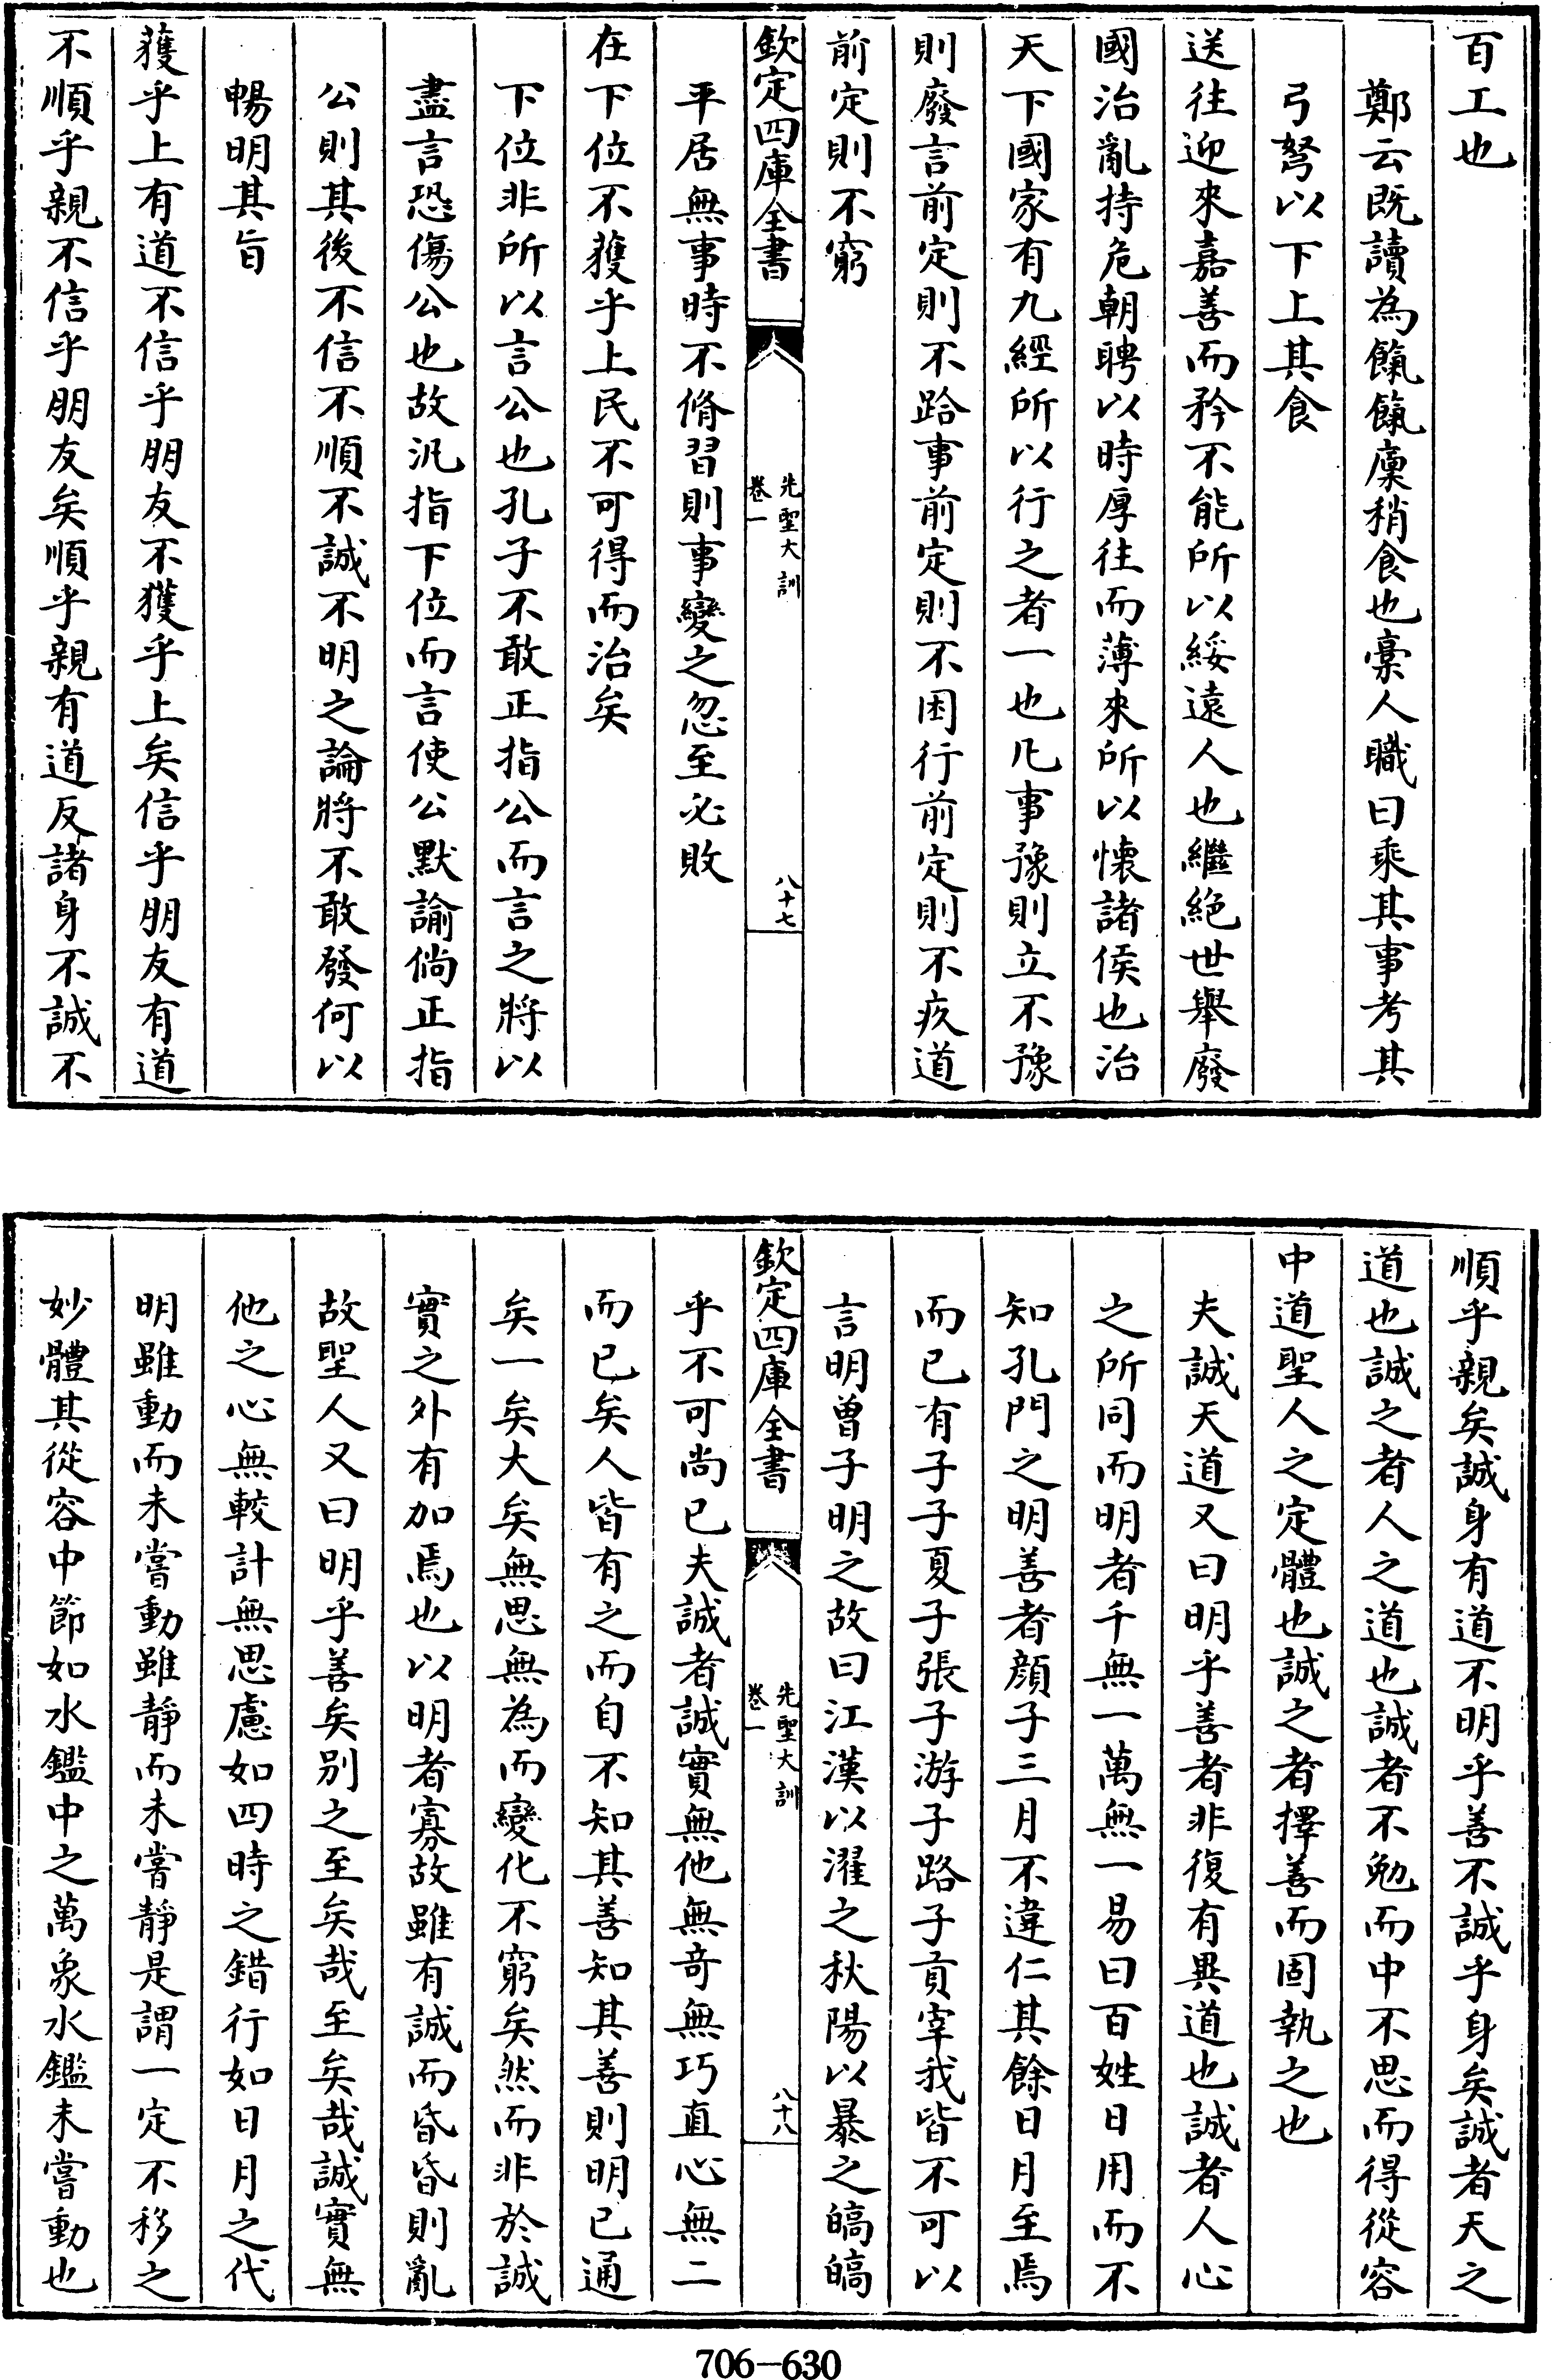 百工也
鄭云既讀為餼餼廩稍食也稾人職曰乘其事考其
弓弩以下上其食
送往迎來嘉善而矜不能所以綏遠人也繼絶世舉廢
國治亂持危朝聘以時厚往而薄來所以懷諸侯也治
天下國家有九經所以行之者一也凡事豫則立不豫
則廢言前定則不跲事前定則不困行前定則不疚道
前定則不窮
欽定四庫全書
先聖大訓
卷一
八十七
平居無事時不脩習則事變之忽至必敗
在下位不獲乎上民不可得而治矣
下位非所以言公也孔子不敢正指公而言之將以
盡言恐傷公也故汎指下位而言使公默諭倘正指
公則其後不信不順不誠不明之論將不敢發何以
暢明其旨
獲乎上有道不信乎朋友不獲乎上矣信乎朋友有道
不順乎親不信乎朋友矣順乎親有道反諸身不誠不
順乎親矣誠身有道不明乎善不誠乎身矣誠者天之
道也誠之者人之道也誠者不勉而中不思而得從容
中道聖人之定體也誠之者擇善而固執之也
夫誠天道又曰明乎善者非復有異道也誠者人心
之所同而明者千無一萬無一易曰百姓日用而不
知孔門之明善者顔子三月不違仁其餘日月至焉
而已有子子夏子張子游子路子貢宰我皆不可以
言明曾子明之故曰江漢以濯之秋陽以暴之皜皜
欽定四庫全書
先聖大訓
卷一
八十八
乎不可尚已夫誠者誠實無他無奇無巧直心無二
而已矣人皆有之而自不知其善知其善則明已通
矣一矣大矣無思無為而變化不窮矣然而非於誠
實之外有加焉也以明者寡故雖有誠而昏昏則亂
故聖人又曰明乎善矣别之至矣哉至矣哉誠實無
他之心無較計無思慮如四時之錯行如日月之代
明雖動而未嘗動雖靜而未嘗靜是謂一定不移之
妙體其從容中節如水鑑中之萬象水鑑未嘗動也
706-630